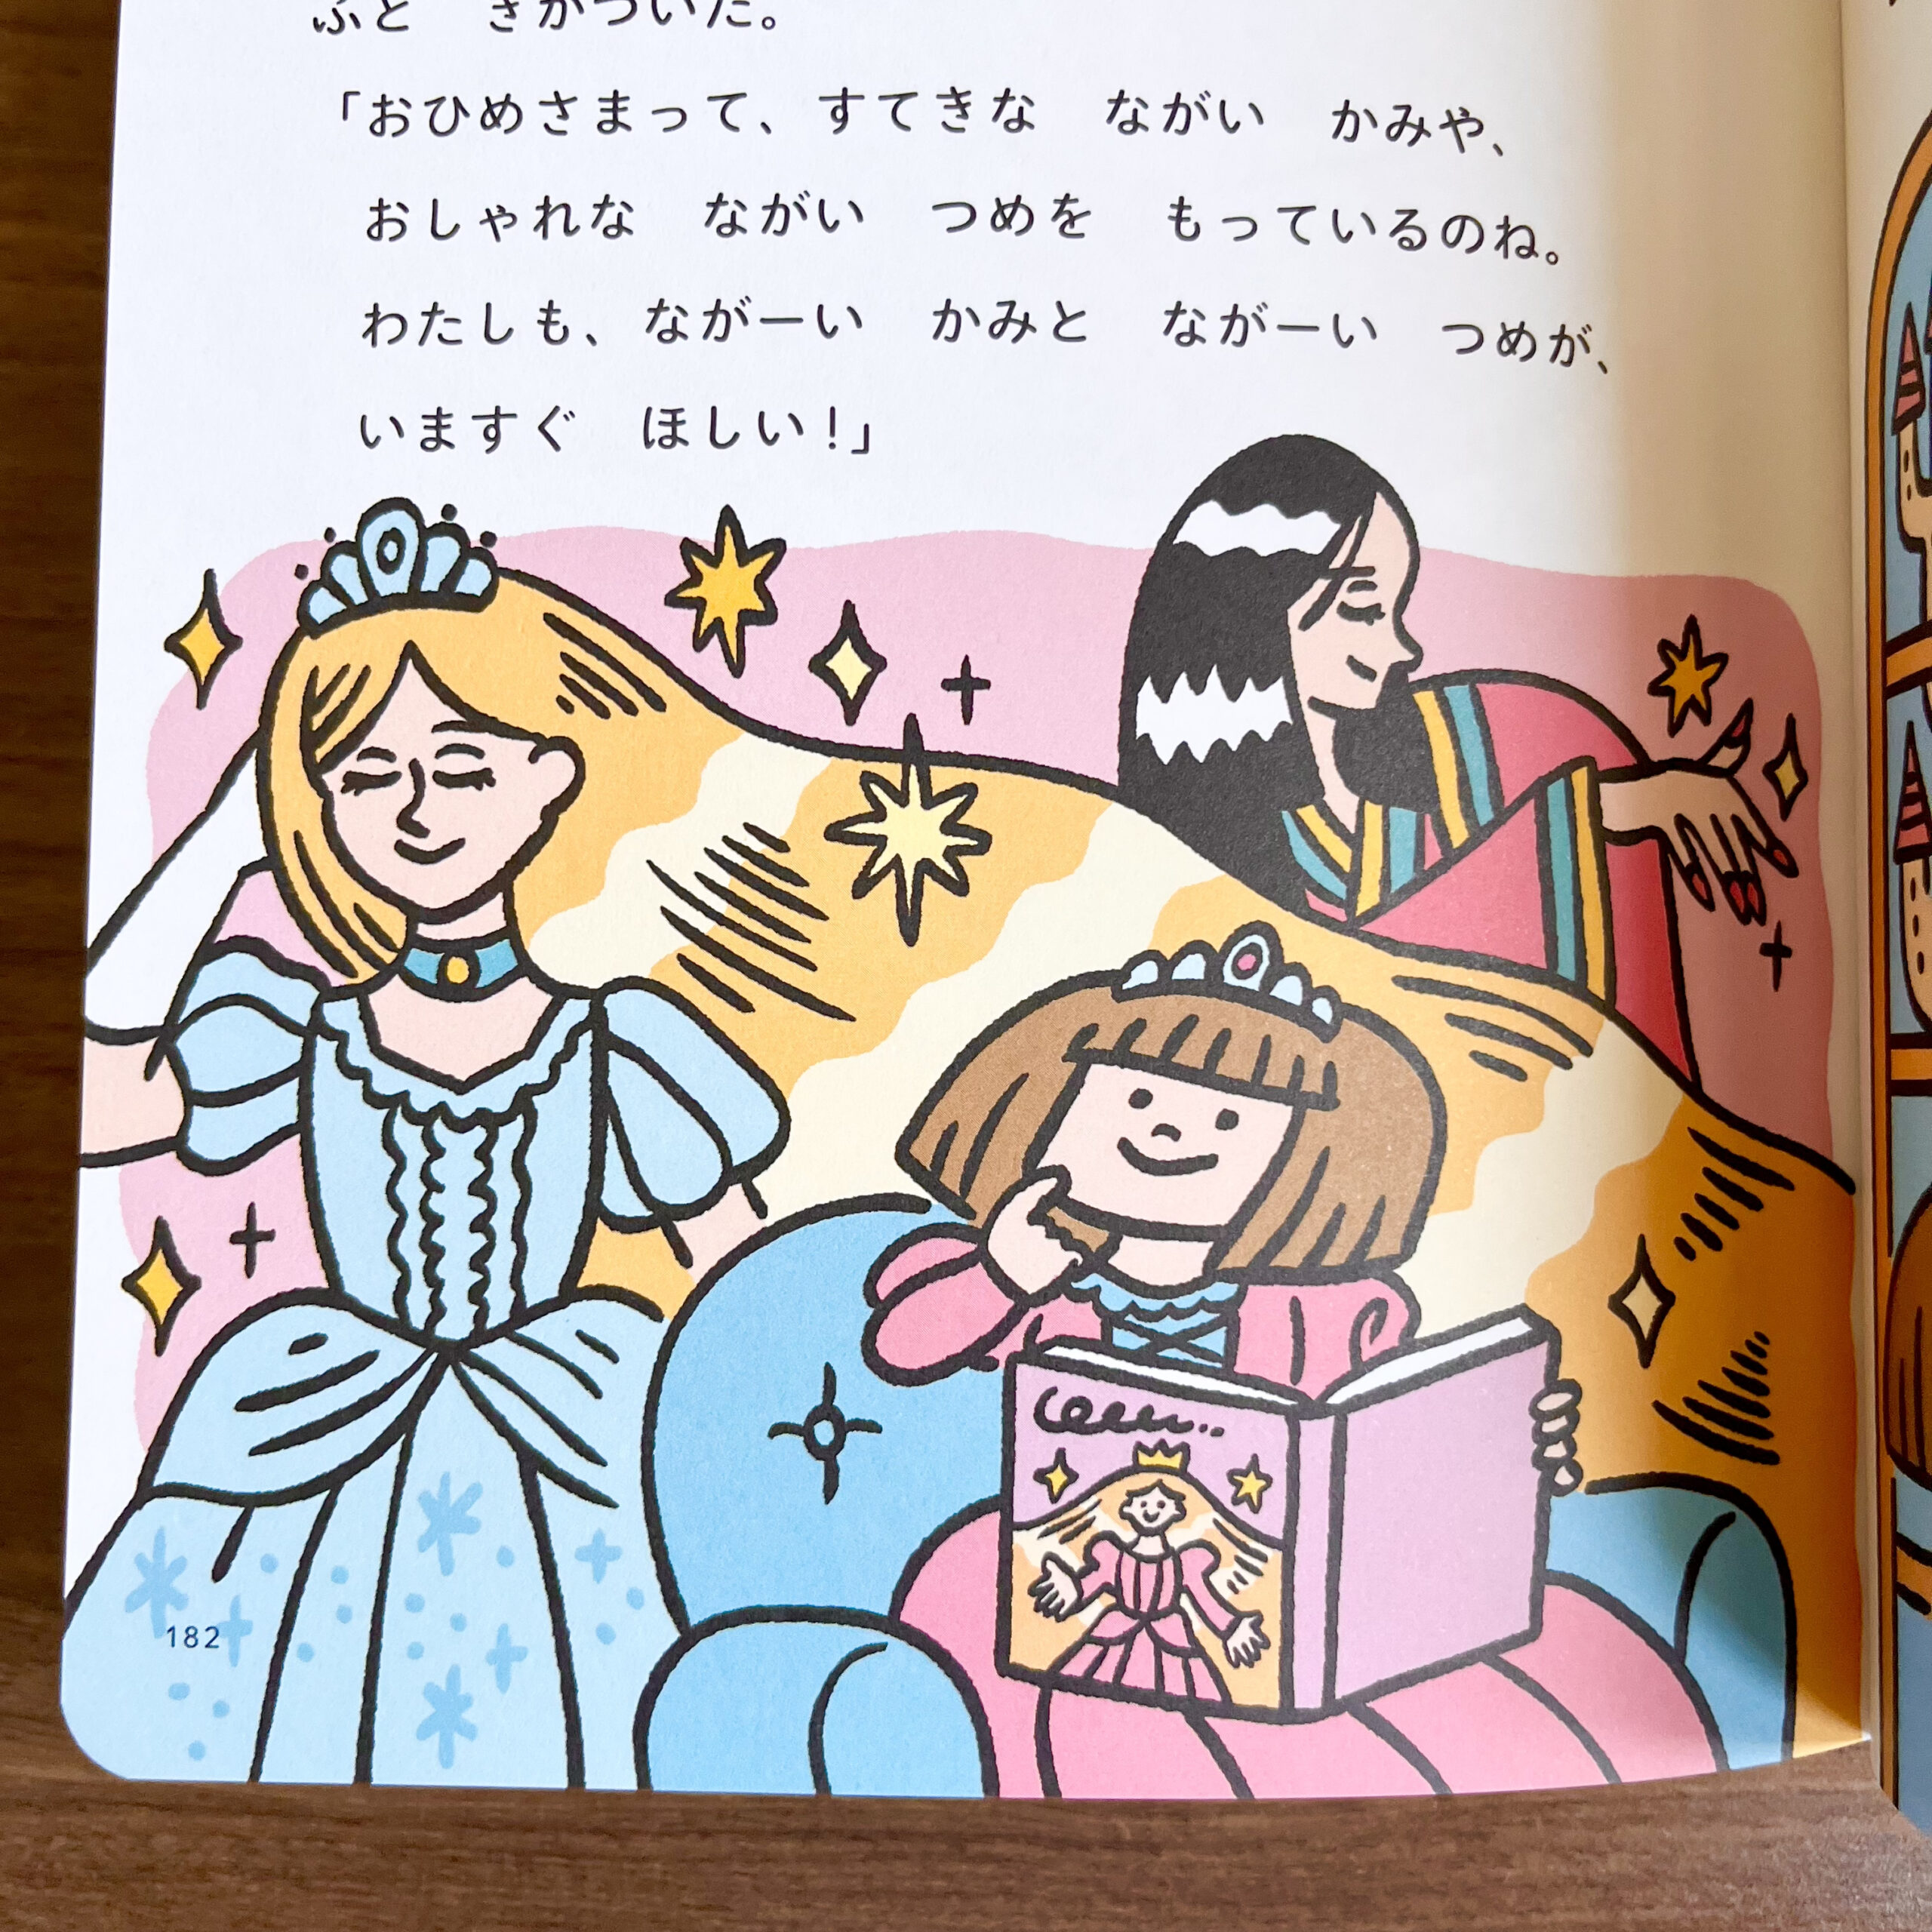 ふと　きがついた。
「おひめさまって、すてきな　ながい　かみや、
おしゃれな　ながい　つめを　もっているのね。
わたしも、ながーい　かみと　ながーい　つめが、
いますぐ　ほしい！」
182